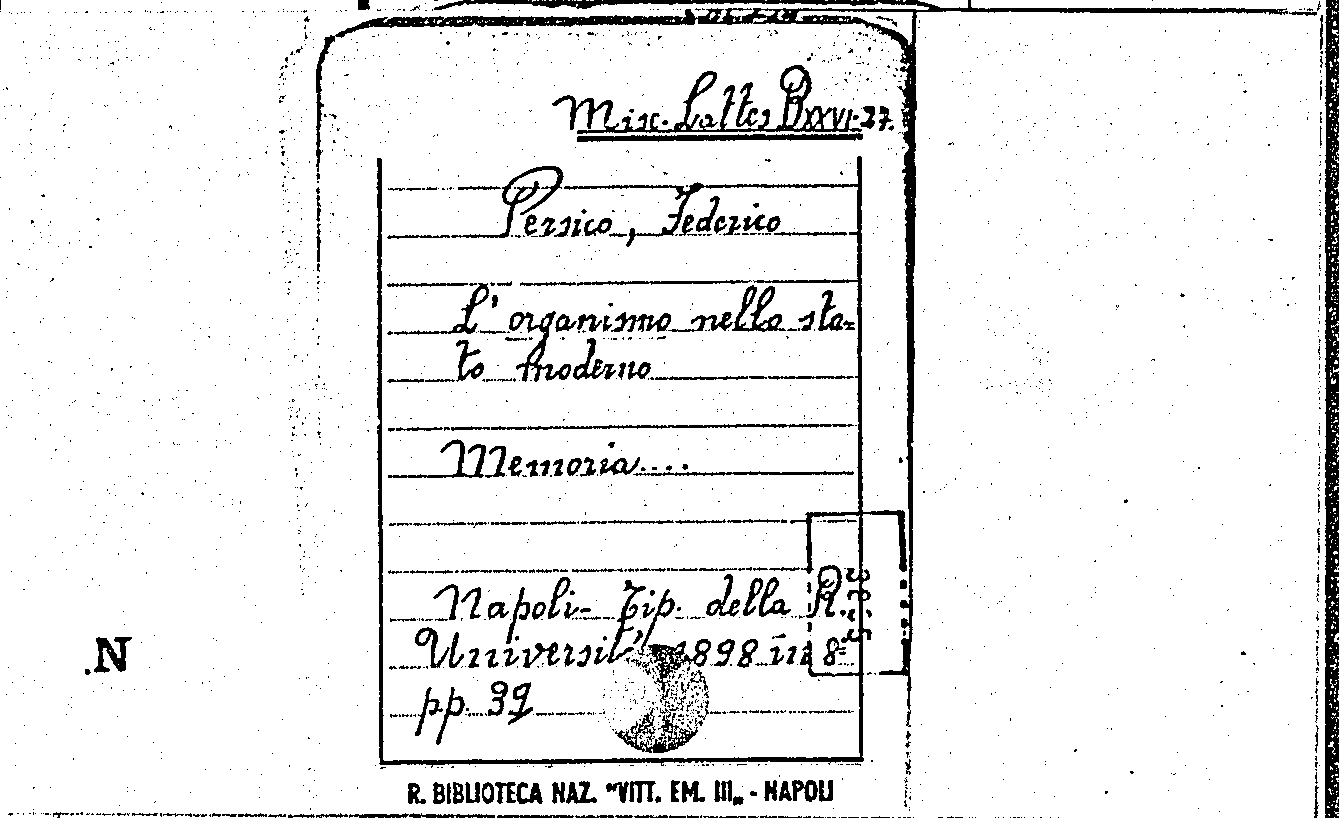 Misc. Lattes B XXVI. 27.
Persico, Federico
L'organismo nello sta=
to moderno
Memoria....
Napoli - Tip. della R.
Università 1898 in 8º
pp. 39
R. BIBLIOTECA NAZ. "VITT. EM. III„ - NAPOLI
.N